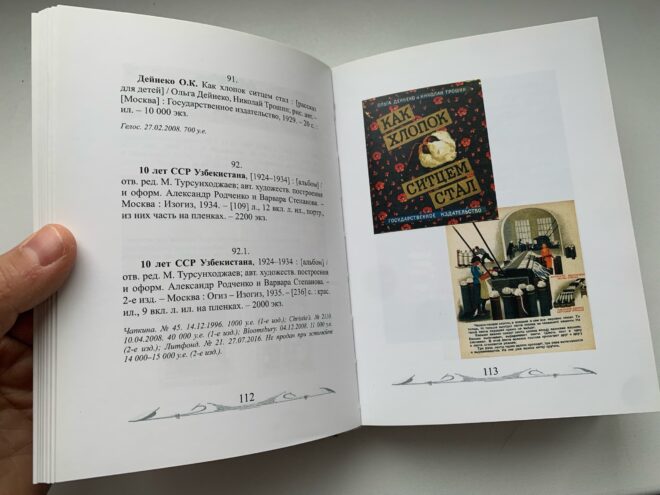 91.
Дейнеко О.К. Как хлопок ситцем стал : [рассказ
для детей] / Ольга Дейнеко, Николай Трошин, рис. авт. –
[Москва] : Государственное издательство, 1929. – 20 с. :
ил. – 10 000 экз.
Гелос. 27.02.2008. 700 у.е.
92.
10 лет ССР Узбекистана, [1924–1934] : [альбом] /
отв. ред. М. Турсунходжаев; авт. художеств. построения
и оформ. Александр Родченко и Варвара Степанова. –
Москва : Изогиз, 1934. – [109] л., 12 вкл. л. ил., портр.,
из них часть на пленках. – 2200 экз.
92.1.
10 лет ССР Узбекистана, 1924–1934 : [альбом] /
отв. ред. М. Турсунходжаев; авт. художеств. построения
и оформ. Александр Родченко и Варвара Степанова. –
2-е изд. – Москва : Огиз – Изогиз, 1935. – [236] с. : крас.
ил., 9 вкл. л. ил. на пленках. – 2000 экз.
Чапкина. № 45. 14.12.1996. 1000 у.е. (1-е изд.); Christie's. № 2110.
10.04.2008. 40 000 у.е. (1-е изд.); Bloomsbury. 04.12.2008. 11 000 у.е.
(2-е изд.); Литфонд. № 21. 27.07.2016. Не продан при эстимейте
14 000–15 000 у.е. (2-е изд.).
112
ОЛЬГА ДЕЙНЕКО и НИКОЛАЙ ТРОШИН
КАК
ХЛОПОК
СИТЦЕМ
СТАЛ
ГОСУДАРСТВЕННОЕ ИЗДАТЕЛЬСТВО
113